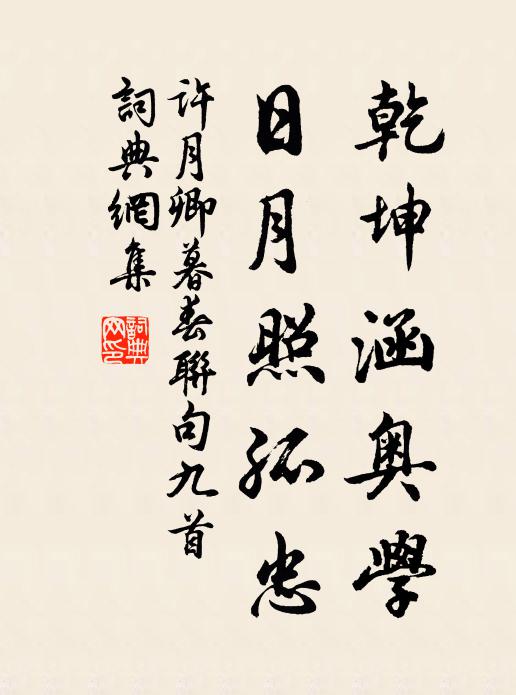 乾坤涵奥學
日月照孤忠
許月卿暮春聯句九首
詞典網集
詞典
网印